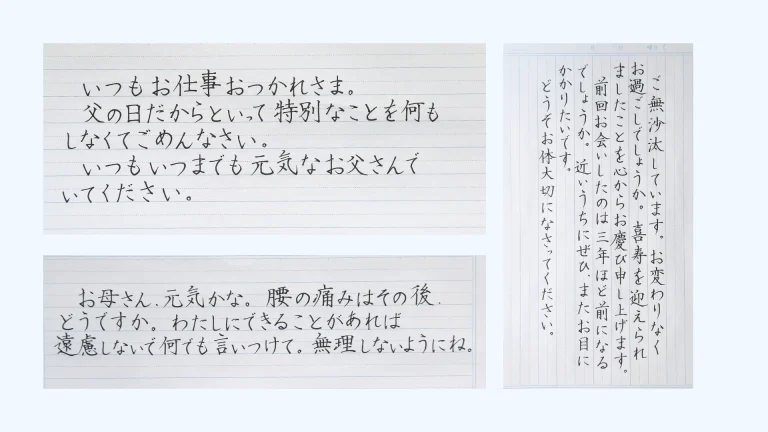 いつもお仕事おつかれさま。
父の日だからといって特別なことを何も
しなくてごめんなさい。
いつもいつまでも元気なお父さんで
いてください。
お母さん、元気かな。腰の痛みはその後、
どうですか。わたしにできることがあれば
遠慮しないで何でも言いつけて。無理しないようにね。
ご無沙汰しています。お変わりなく
お過ごしでしょうか。喜寿を迎えられ
ましたことを心からお慶び申し上げます。
前回お会いしたのは三年ほど前になる
でしょうか。近いうちにぜひ、またお目に
かかりたいです。
どうぞお体大切になさってください。